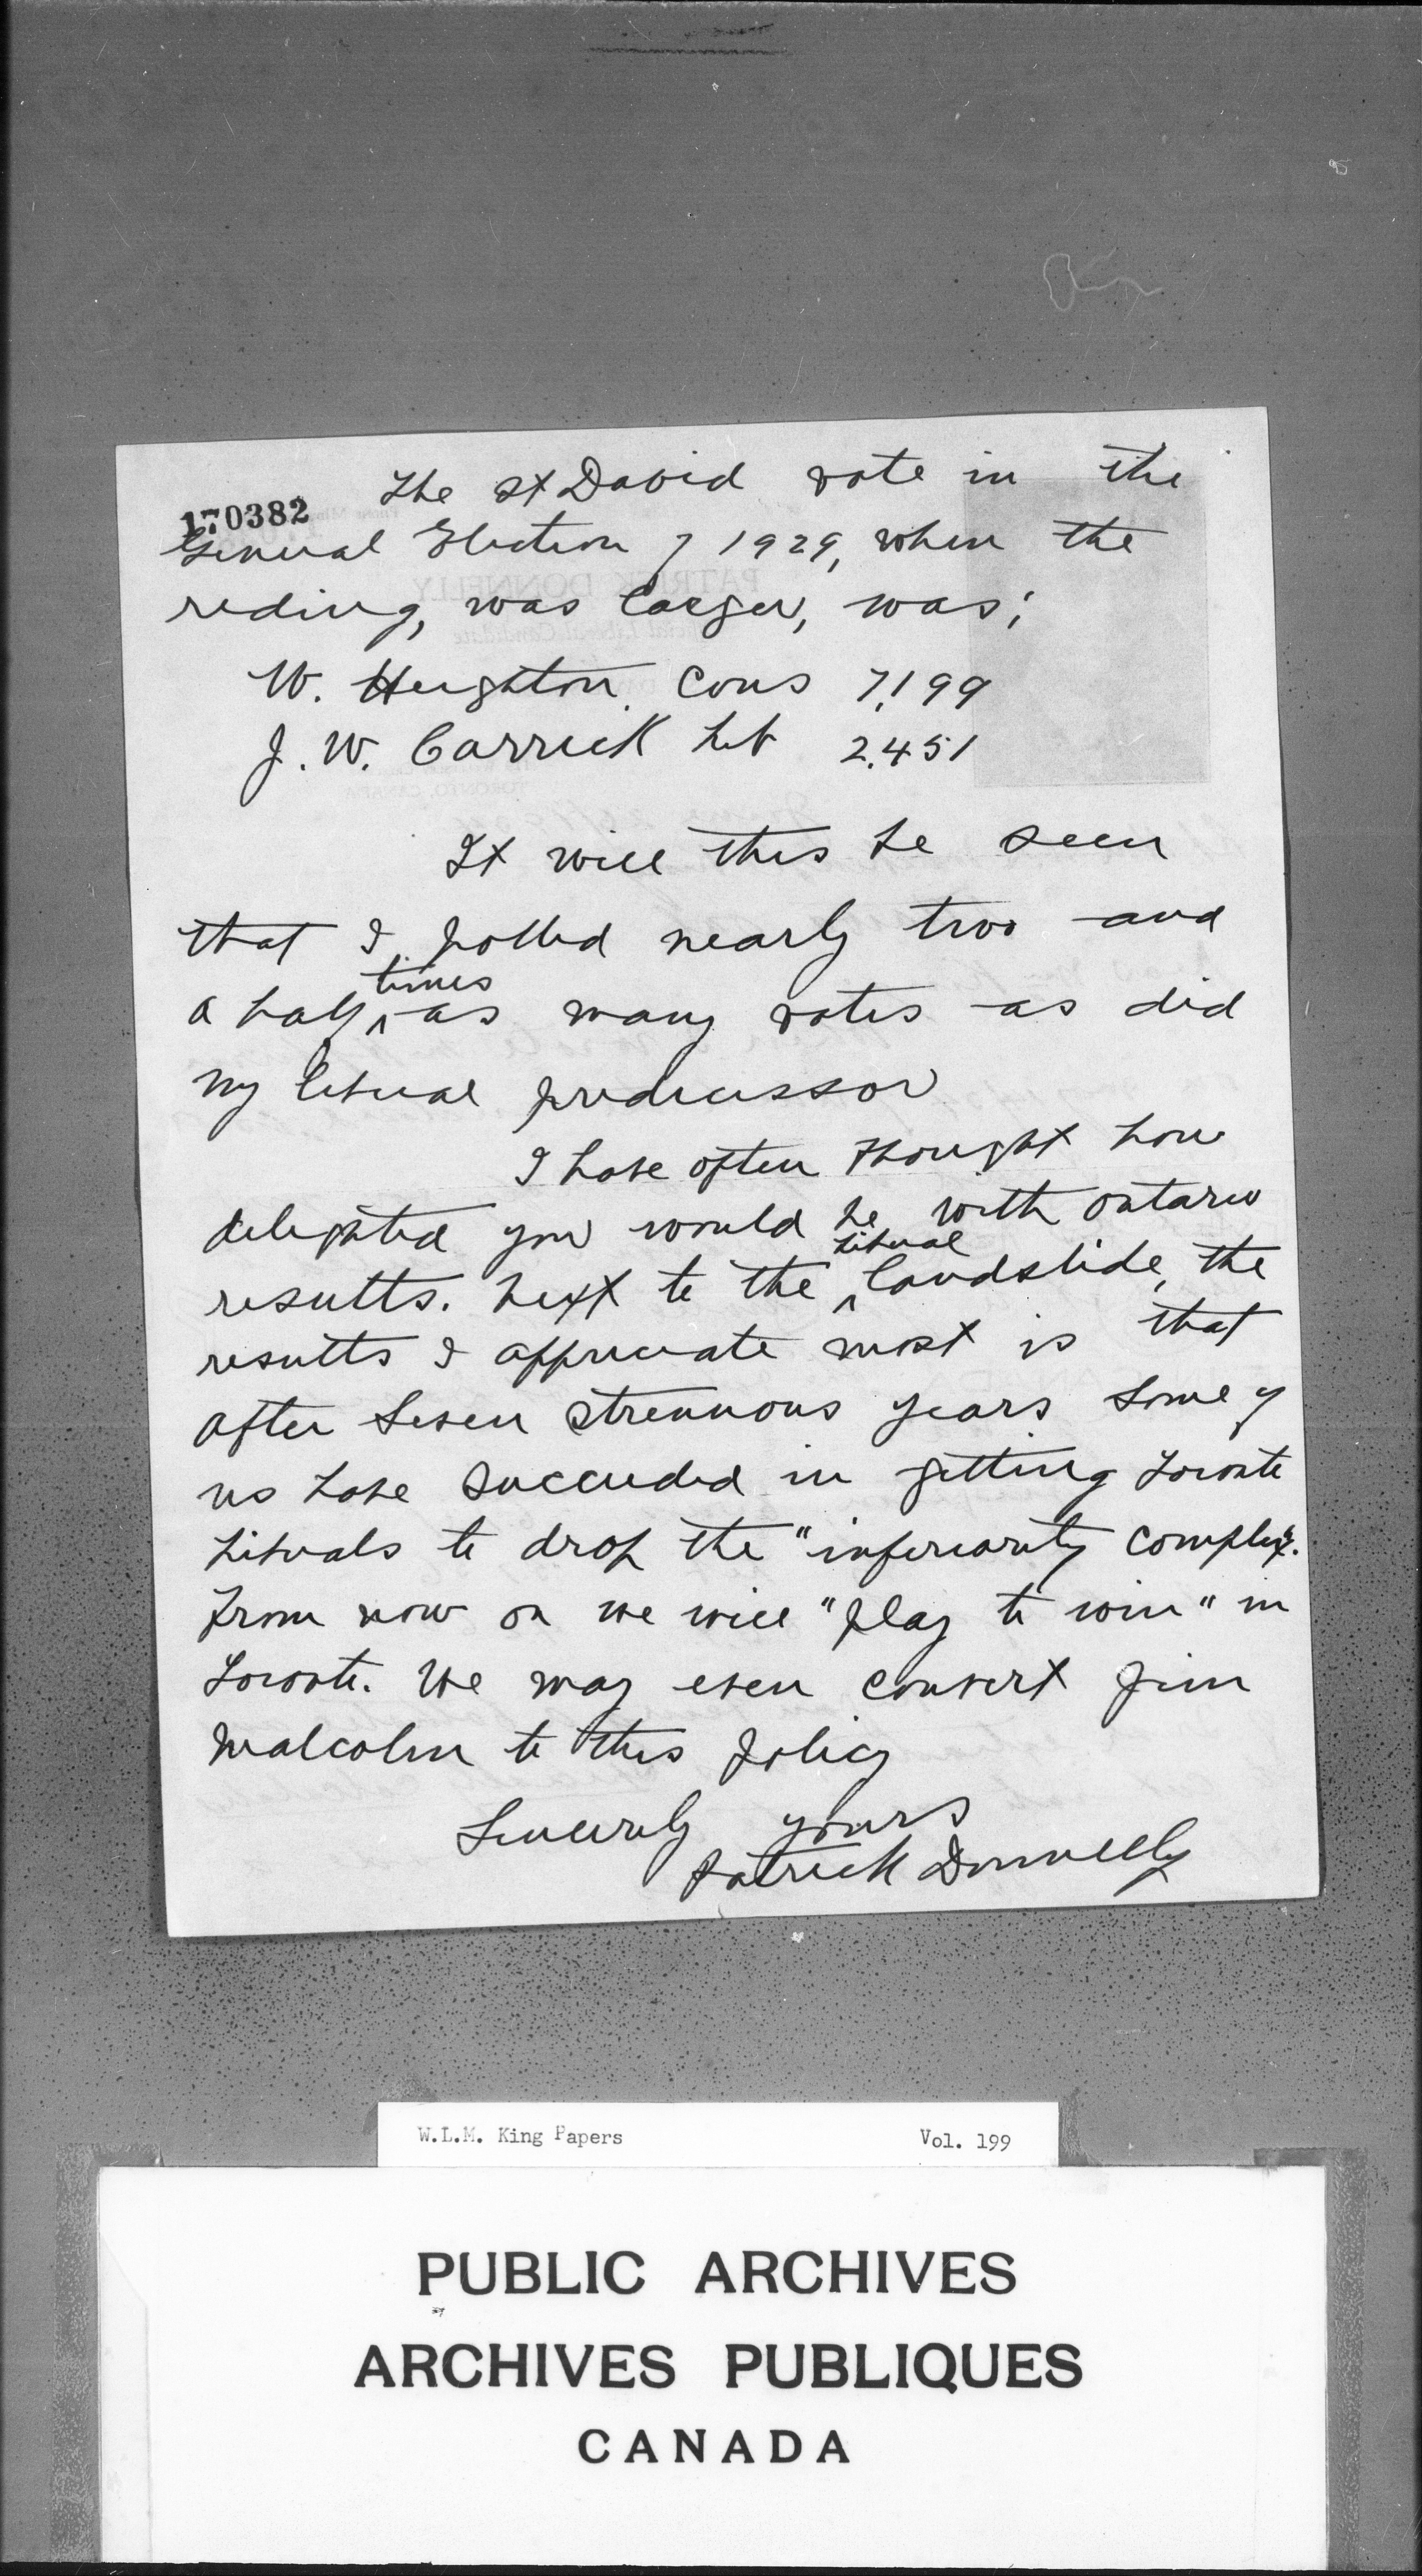 The St David vote in the
170382
General Election of 1929, when the
riding, was larger, was;
W. Heighton Cons 7,199
J. W. Carrick Lib 2,451
It will this be seen
that I polled nearly two and
times
a half as many votes as did
my liberal predecessor
I have often thought how
delighted you would be with Ontario
liberal
results. Next to the landslide, the
results I appreciate most is that
after seven strenuous years some of
us have succeeded in getting Toronto
Liberals to drop the "inferiority complex".
From now on we will "play to win" in
Toronto. We may even convert Jim
Malcolm to this policy
Sincerely yours
Patrick Donnelly
W.L.M. King Papers Vol. 199
PUBLIC ARCHIVES
ARCHIVES PUBLIQUES
CANADA